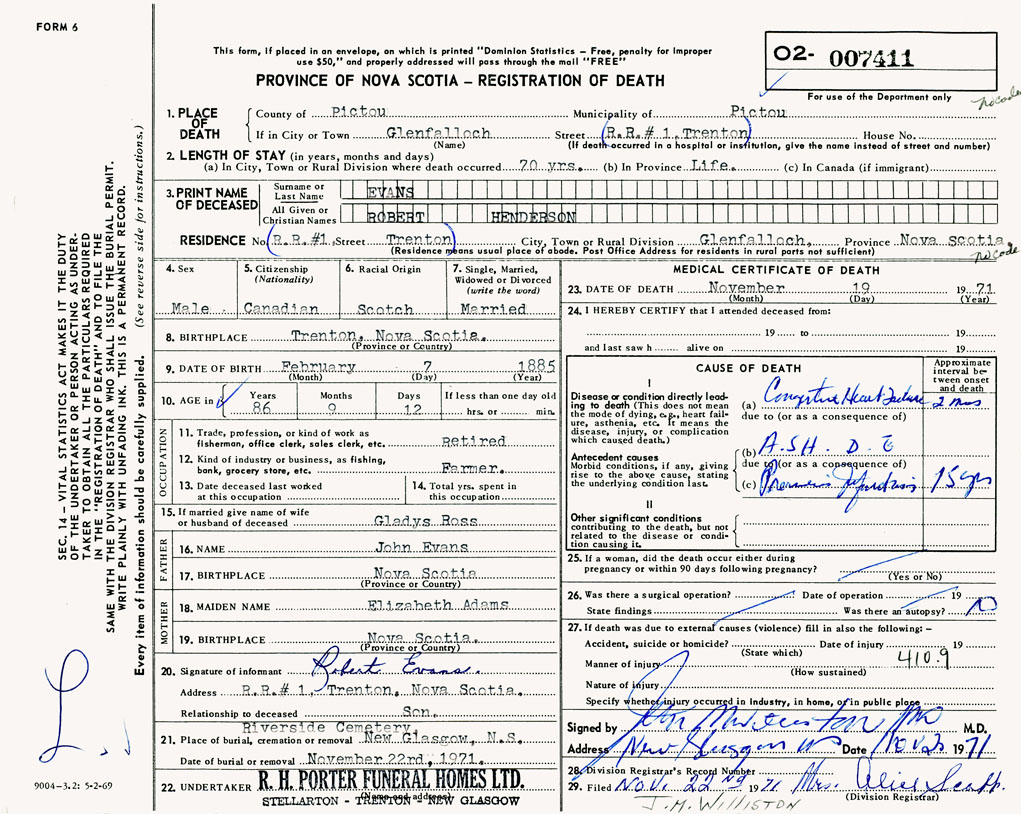 FORM 6
This form, if placed in an envelope, on which is printed "Dominion Statistics – Free, penalty for improper
use $50," and properly addressed will pass through the mail "FREE"
PROVINCE OF NOVA SCOTIA – REGISTRATION OF DEATH
O2- 007411
For use of the Department only
no code
SEC. 14 – VITAL STATISTICS ACT MAKES IT THE DUTY
OF THE UNDERTAKER OR PERSON ACTING AS UNDER-
TAKER TO OBTAIN ALL THE PARTICULARS REQUIRED
IN THE "REGISTRATION OF DEATH" AND TO FILE THE
SAME WITH THE DIVISION REGISTRAR WHO SHALL ISSUE THE BURIAL PERMIT.
WRITE PLAINLY WITH UNFADING INK. THIS IS A PERMANENT RECORD.
Every item of information should be carefully supplied. (See reverse side for instructions.)
1. PLACE OF DEATH
County of Pictou Municipality of Pictou
If in City or Town Glenfalloch Street R.R.# 1, Trenton House No.
(Name) (If death occurred in a hospital or institution, give the name instead of street and number)
2. LENGTH OF STAY (in years, months and days)
(a) In City, Town or Rural Division where death occurred 70 yrs. (b) In Province Life. (c) In Canada (if immigrant)
3. PRINT NAME OF DECEASED
Surname or Last Name EVANS
All Given or Christian Names ROBERT HENDERSON
RESIDENCE No. R.R.#1, Street Trenton City, Town or Rural Division Glenfalloch, Province Nova Scotia,
(Residence means usual place of abode. Post Office Address for residents in rural parts not sufficient)
no code
4. Sex
Male
5. Citizenship
(Nationality)
Canadian
6. Racial Origin
Scotch
7. Single, Married,
Widowed or Divorced
(write the word)
Married
8. BIRTHPLACE Trenton, Nova Scotia.
(Province or Country)
9. DATE OF BIRTH February 7 1885
(Month) (Day) (Year)
10. AGE in
Years Months Days If less than one day old
86 9 12 hrs. or min.
OCCUPATION
11. Trade, profession, or kind of work as
fisherman, office clerk, sales clerk, etc. Retired
12. Kind of industry or business, as fishing,
bank, grocery store, etc. Farmer.
13. Date deceased last worked
at this occupation
14. Total yrs. spent in
this occupation
15. If married give name of wife
or husband of deceased Gladys Ross
FATHER
16. NAME John Evans
17. BIRTHPLACE Nova Scotia
(Province or Country)
MOTHER
18. MAIDEN NAME Elizabeth Adams
19. BIRTHPLACE Nova Scotia.
(Province or Country)
20. Signature of informant Robert Evans.
Address R.R.# 1, Trenton, Nova Scotia.
Relationship to deceased Son.
Riverside Cemetery
21. Place of burial, cremation or removal New Glasgow, N.S.
Date of burial or removal November 22rd, 1971.
22. UNDERTAKER R. H. PORTER FUNERAL HOMES LTD.
(Name and address)
STELLARTON - TRENTON - NEW GLASGOW
9004-3.2: 5-2-69
MEDICAL CERTIFICATE OF DEATH
23. DATE OF DEATH November 19 1971
(Month) (Day) (Year)
24. I HEREBY CERTIFY that I attended deceased from:
19 to 19
and last saw h alive on 19
CAUSE OF DEATH
Approximate interval between onset and death
I
Disease or condition directly leading to death (This does not mean the mode of dying, e.g., heart failure, asthenia, etc. It means the disease, injury, or complication which caused death.)
(a) Congestive Heart Failure 2 mos
due to (or as a consequence of)
Antecedent causes
Morbid conditions, if any, giving rise to the above cause, stating the underlying condition last.
(b) A.S.H.D.
due to (or as a consequence of)
(c) Infarction 15 yrs
II
Other significant conditions
contributing to the death, but not related to the disease or condition causing it.
25. If a woman, did the death occur either during
pregnancy or within 90 days following pregnancy?
(Yes or No)
26. Was there a surgical operation? Date of operation 19
State findings Was there an autopsy? No
27. If death was due to external causes (violence) fill in also the following: –
Accident, suicide or homicide? Date of injury 19
(State which)
410.9
Manner of injury
(How sustained)
Nature of injury
Specify whether injury occurred in industry, in home, or in public place
Signed by M.D.
Address New Glasgow NS Date Nov 1971
28. Division Registrar's Record Number
29. Filed Nov. 22nd 1971 Mrs. Alice
(Division Registrar)
J.M. WILLISTON